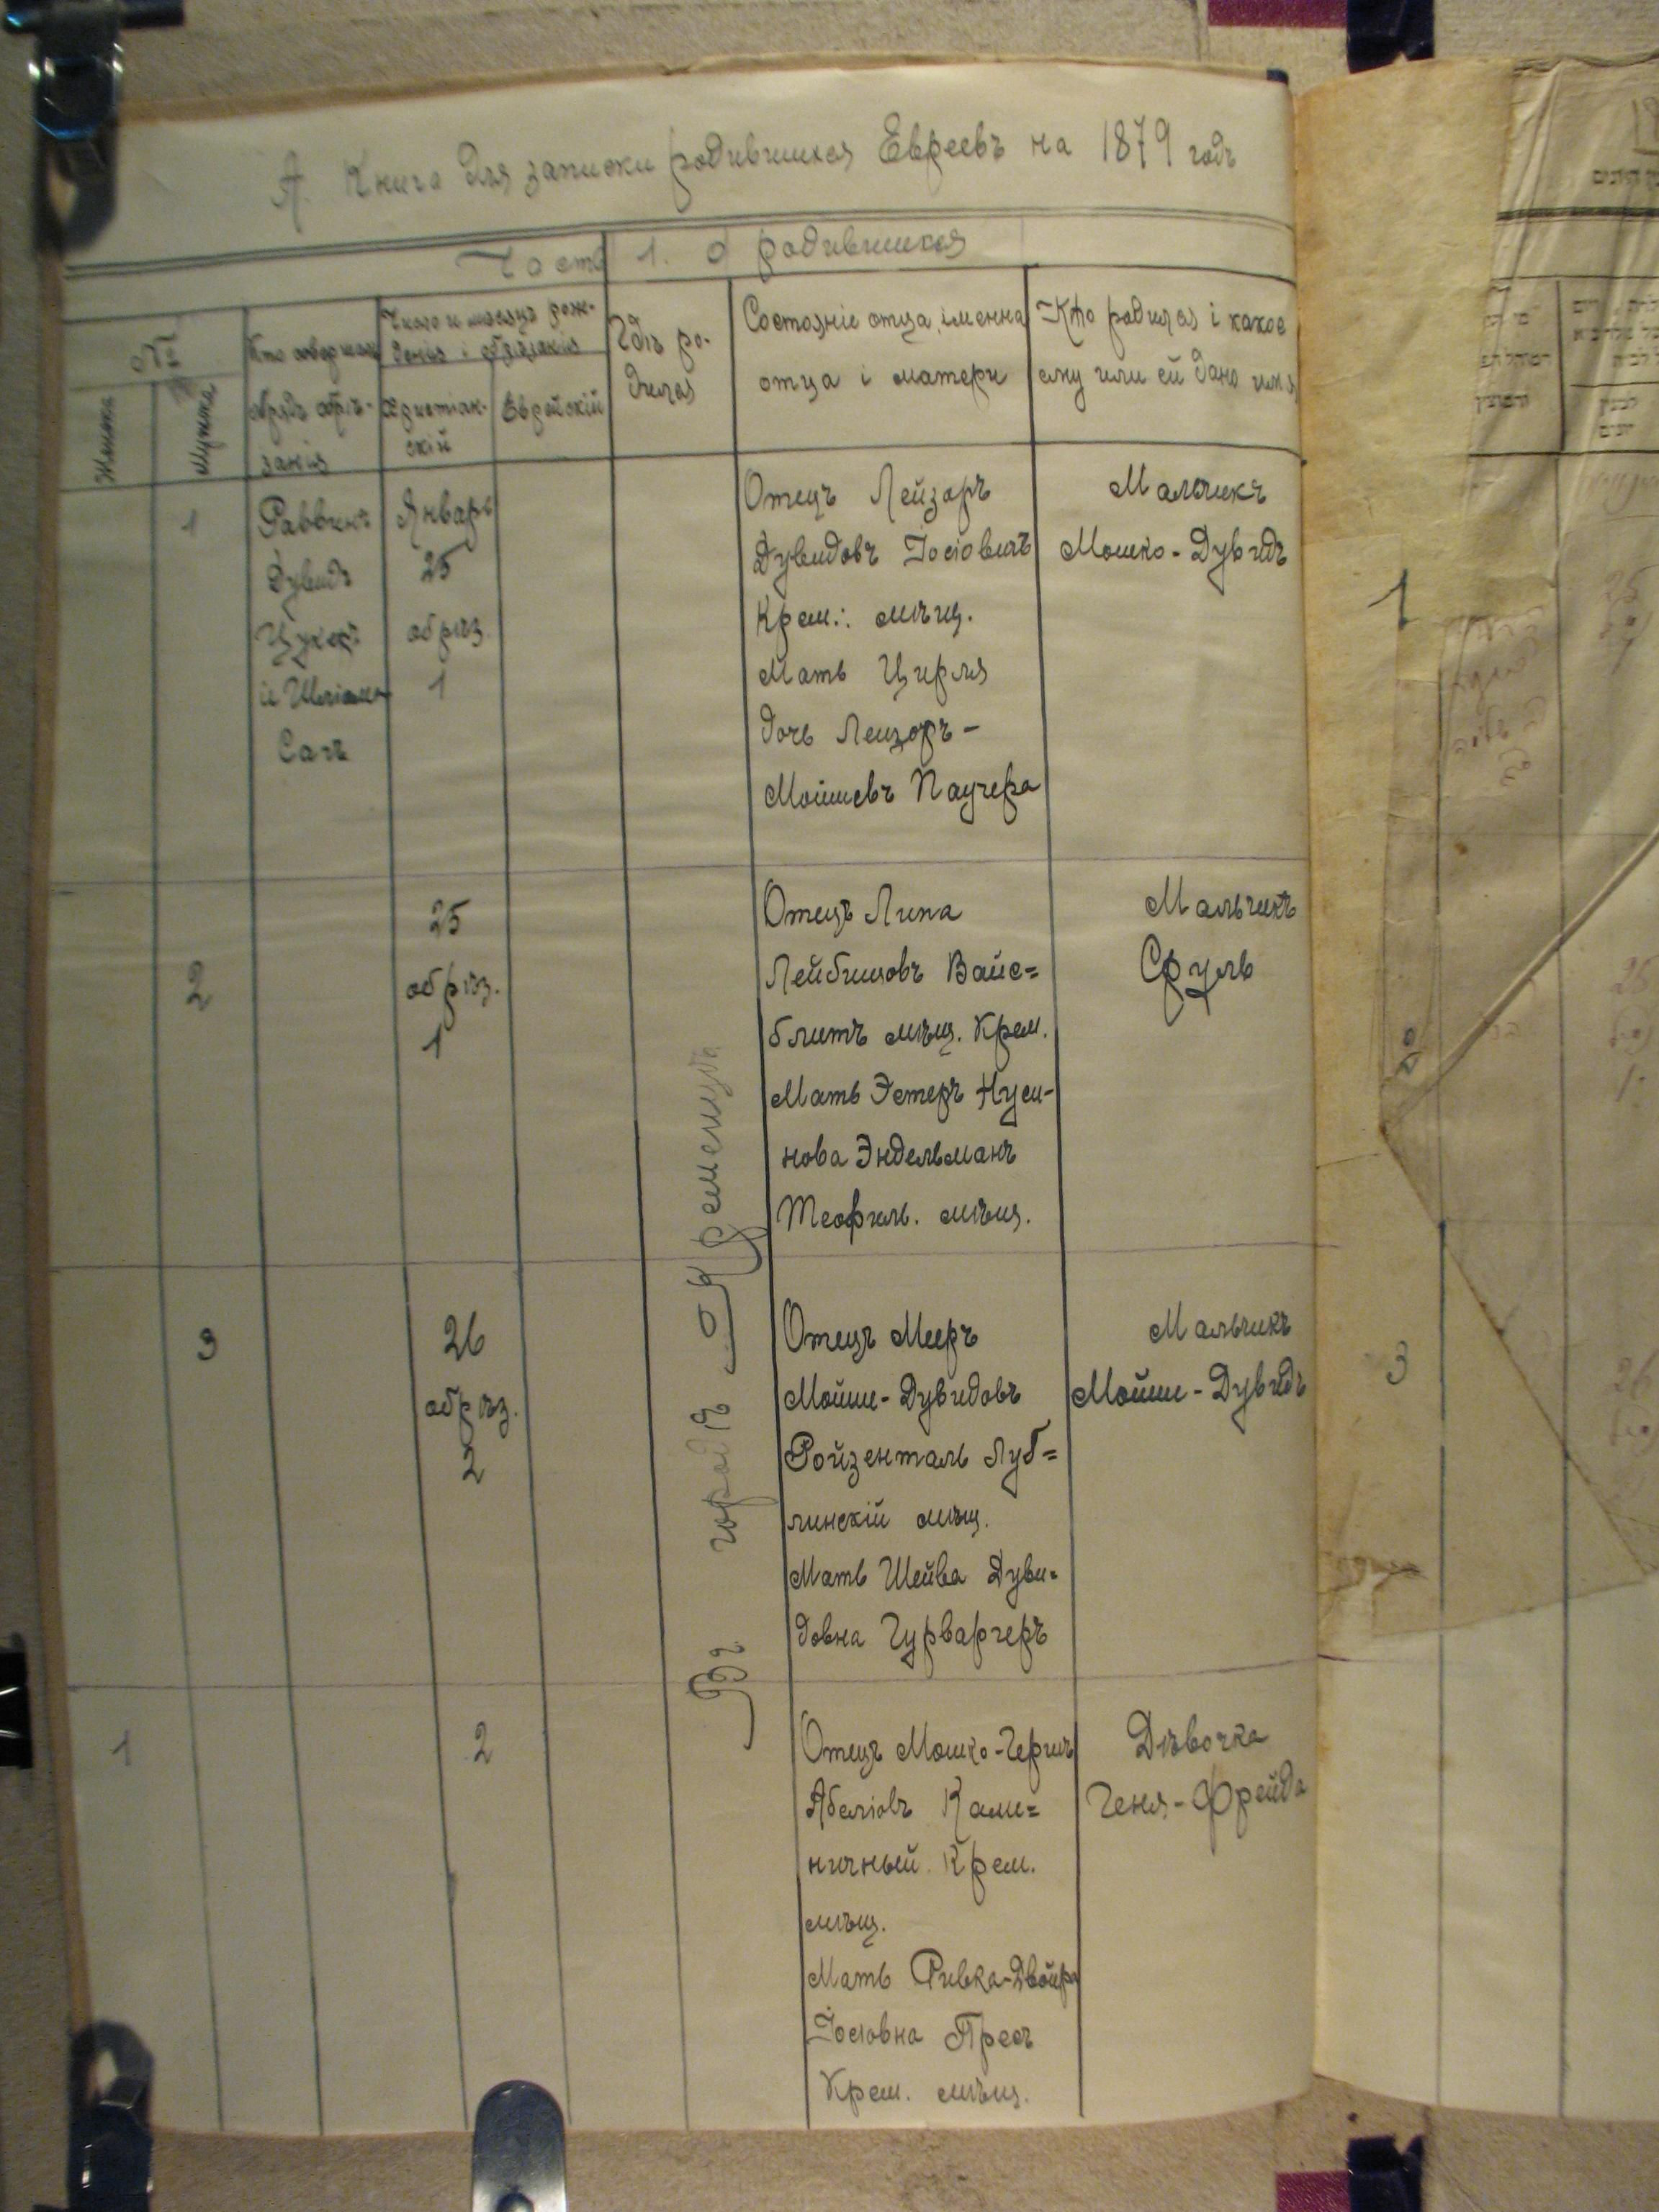 А. Книга для записки родившихся Евреевъ на 1879 годъ
Часть 1. О родившихся
№
Женска
Мужска
Кто совершалъ
обрядъ обрѣ-
занія
Число и мѣсяцъ рож-
денія і обрѣзанія
Христіан-
скій
Еврейскій
Гдѣ ро-
дился
Состояніе отца, імена
отца і матери
Кто родился і какое
ему или ей дано имя
1
Раввинъ
Дувидъ
Цукеръ
и
Сагъ
Январь
25
обрѣз.
1
Отецъ Лейзоръ
Дувидовъ Іосіовичъ
Крем.: мѣщ.
Мать Цирля
дочь Лейзоръ-
Мойшевъ Паучера
Мальчикъ
Мошко-Дувидъ
2
25
обрѣз.
1
Отецъ Липа
Лейбишовъ Вайс=
блитъ мѣщ. Крем.
Мать Эстеръ Нуси-
нова Эндельманъ
Теофил. мѣщ.
Мальчикъ
Сруль
3
26
обрѣз.
2
Отецъ Мееръ
Мойше-Дувидовъ
Ройзенталь Луб=
линскій мѣщ.
Мать Шейва Дуви=
довна Гурваргеръ
Мальчикъ
Мойше-Дувидъ
1
2
Отецъ Мошко-Гершъ
Абеліовъ Каме=
ничный Крем.
мѣщ.
Мать Ривка-Двойра
Іосіовна Пресъ
Крем. мѣщ.
Дѣвочка
Геня-Фрейда
Въ городѣ Кременцѣ
1
25
3
26